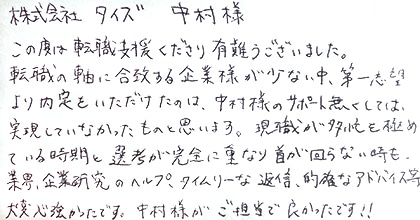 株式会社 タイズ 中村様
この度は転職支援くださり有難うございました。
転職の軸に合致する企業様が少ない中、第一志望
より内定をいただけたのは、中村様のサポート無くしては、
実現していなかったものと思います。現職が多忙を極め
ている時期と選考が完全に重なり首が回らない時も、
業界、企業研究のヘルプ、タイムリーな返信、的確なアドバイス等
大変心強かったです。中村様がご担当で良かったです!!